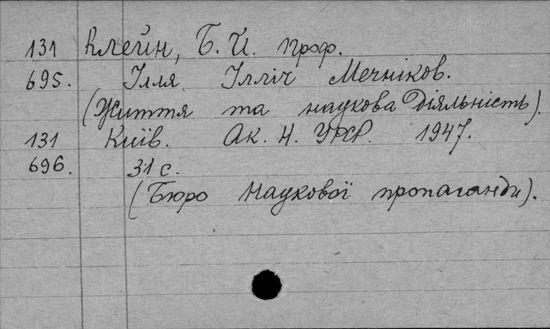 131 Клейн, Б. И. проф.
695. Ілля Ілліч Мечніков.
(Життя та наукова діяльність).
131 Київ. Ак. Н. УРСР. 1947.
696. 31 с.
(Бюро наукової пропаганди).